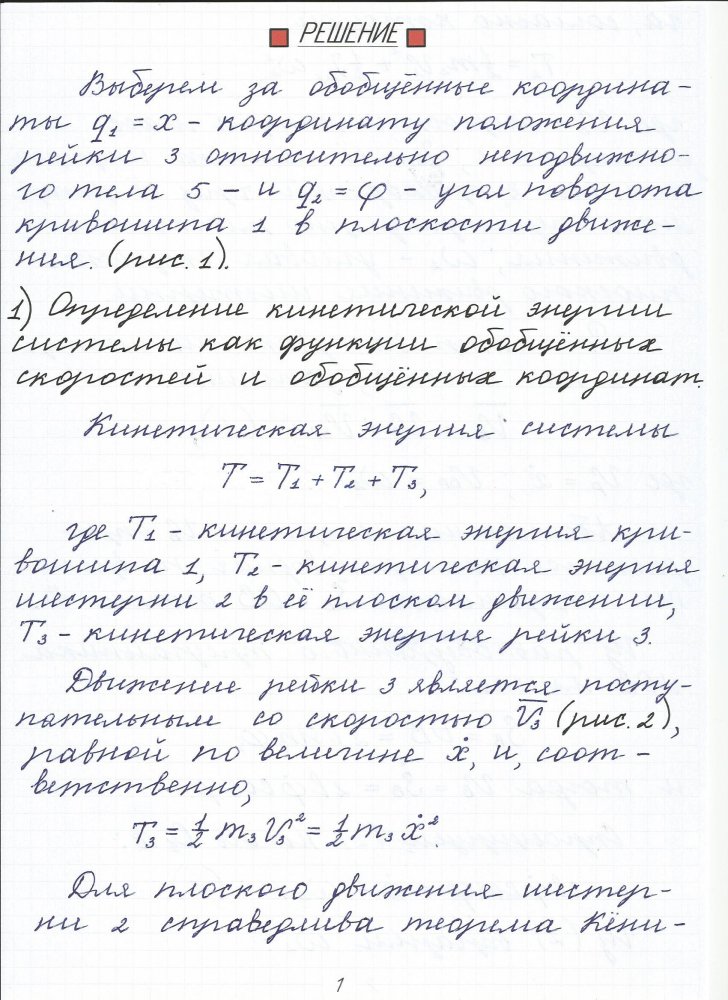 РЕШЕНИЕ
Выберем за обобщённые координа-
ты q₁ = x – координату положения
рейки 3 относительно неподвижно-
го тела 5 – и q₂ = φ – угол поворота
кривошипа 1 в плоскости движе-
ния. (рис. 1).
1) Определение кинетической энергии
системы как функции обобщённых
скоростей и обобщённых координат.
Кинетическая энергия системы
T = T₁ + T₂ + T₃,
где T₁ – кинетическая энергия кри-
вошипа 1, T₂ – кинетическая энергия
шестерни 2 в её плоском движении,
T₃ – кинетическая энергия рейки 3.
Движение рейки 3 является посту-
пательным со скоростью V̅₃ (рис. 2),
равной по величине ẋ, и, соот-
ветственно,
T₃ = 1/2 m₃ V₃² = 1/2 m₃ ẋ².
Для плоского движения шестер-
ни 2 справедлива теорема Кёни-
1